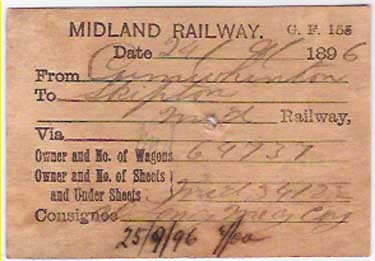 MIDLAND RAILWAY. G. F. 155
Date 24/ 1896
From Cumwhinton
To Skipton
Mid Railway,
Via
Owner and No. of Wagons 64737
Owner and No. of Sheets
and Under Sheets Mid
Consignee
25/9/96